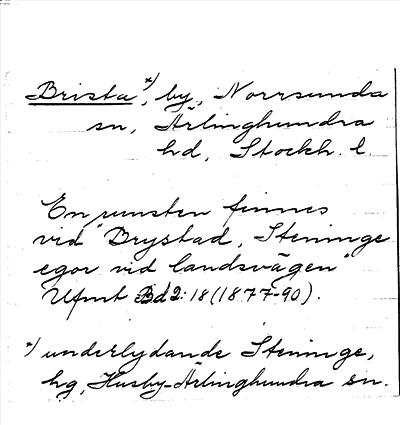 Brista*), by, Norrsunda
sn, Ärlinghundra
hd, Stockh. l.
En runsten finnes
vid "Brystad, Steninge
egor vid landsvägen"
Ufmt Bd 2:18 (1877-90).
*) underlydande Steninge,
hg, Husby-Ärlinghundra sn.